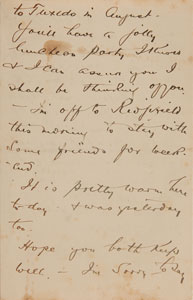 to Tuxedo in August.
You'll have a jolly
party I know
& I can assure you I
shall be thinking of you
- I'm off to Redfield
this morning to stay with
some friends for week-
end.
It is pretty warm here
to-day & was yesterday
too.
Hope you both keep
well. - I'm sorry to say